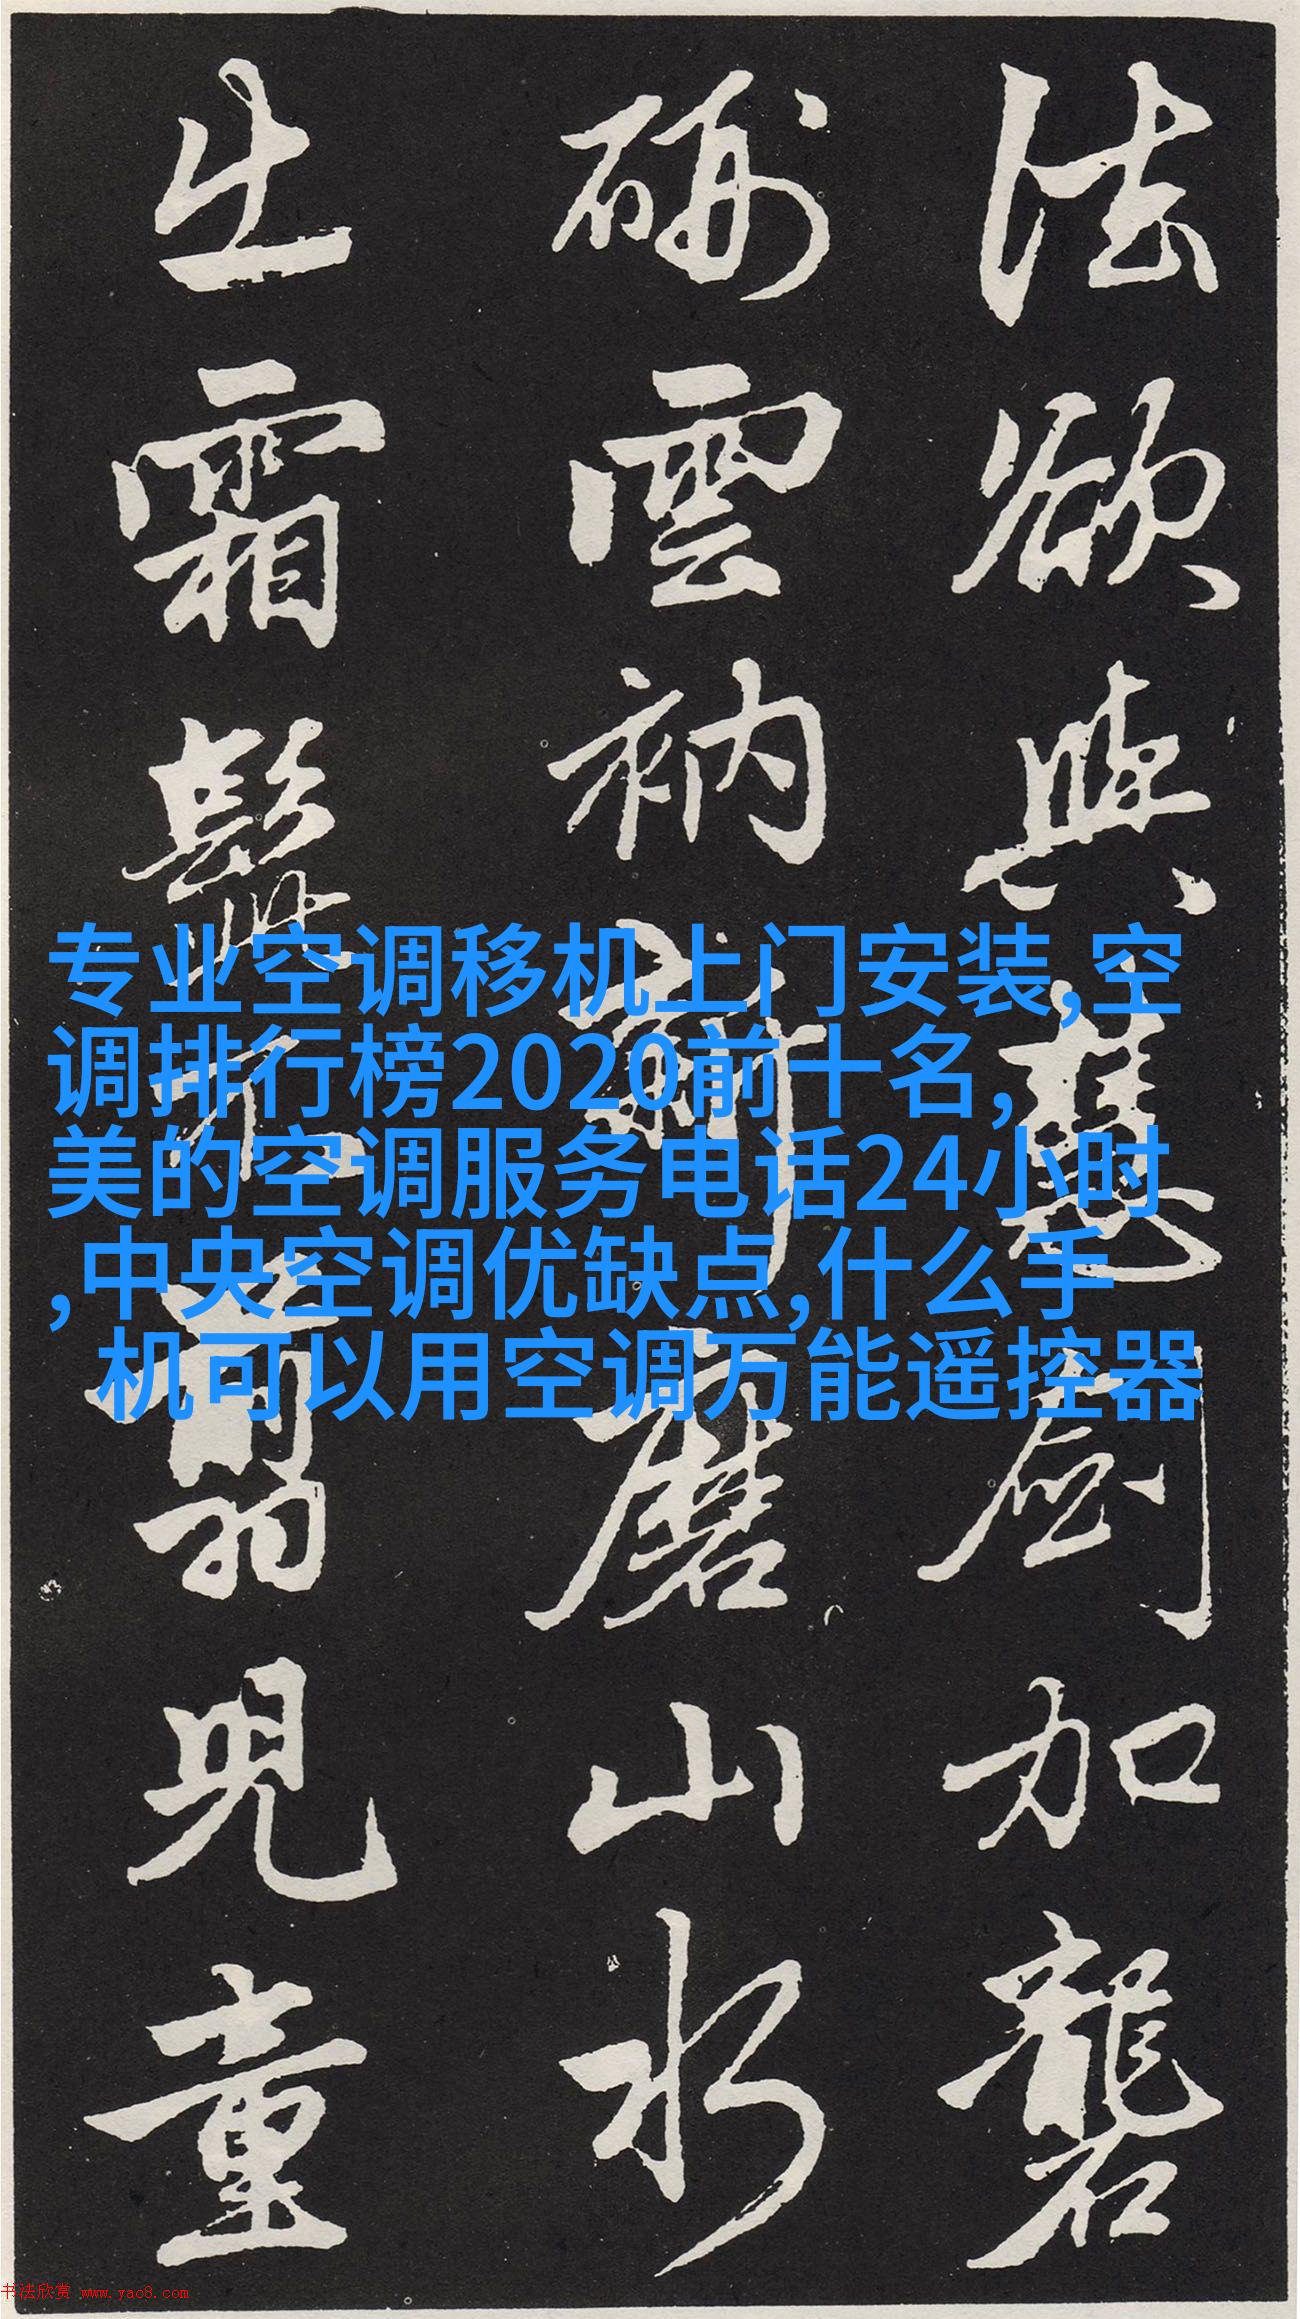 法欲與慧劍加礱
硎雲衲新磨山水
出霜髭不翦兒童
专业空调移机上门安装,空
调排行榜2020前十名,
美的空调服务电话24小时
,中央空调优缺点,什么手
机可以用空调万能遥控器
书法欣赏 www.yac8.com